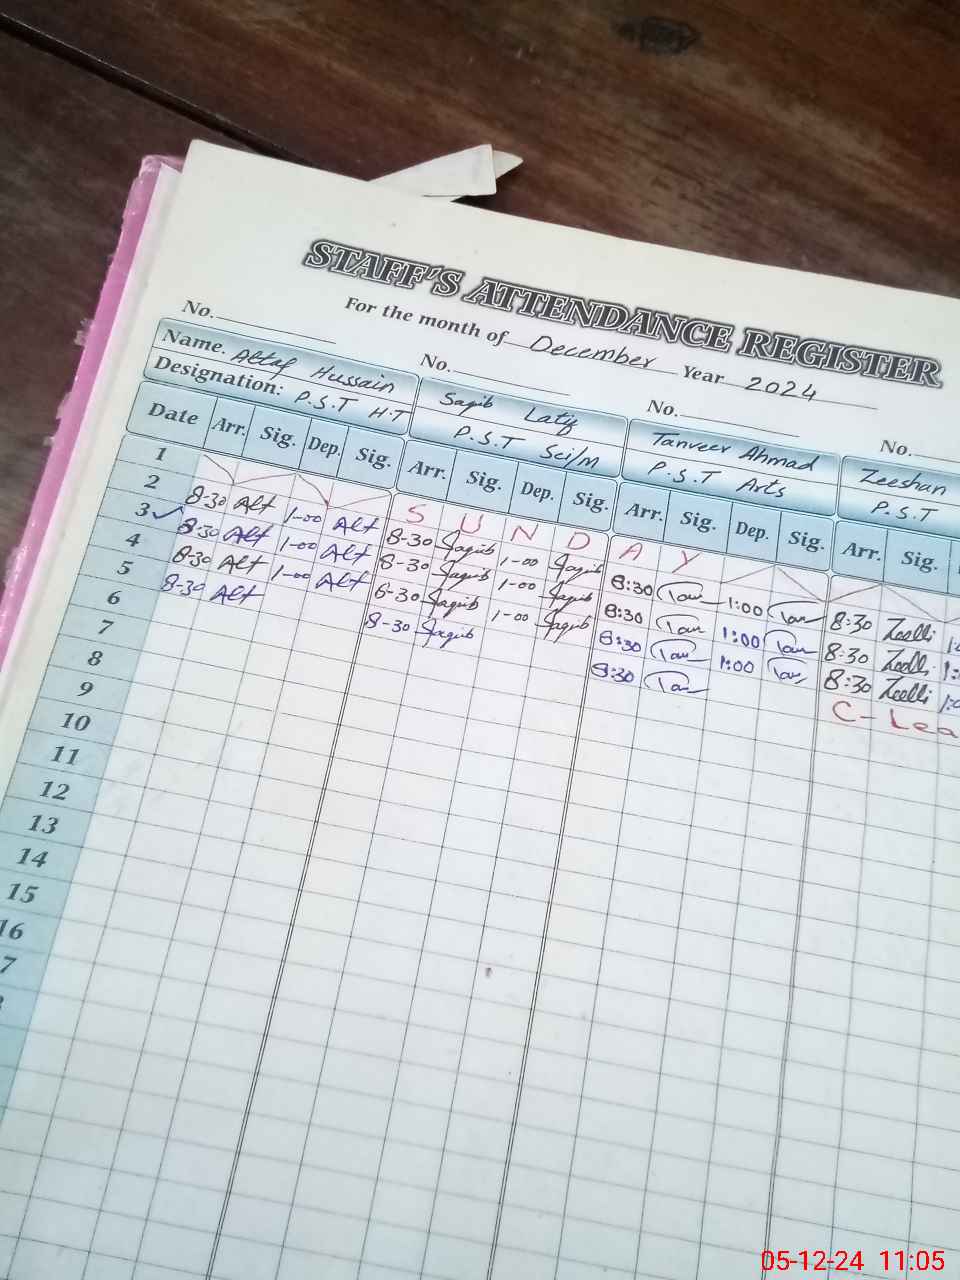 STAFF'S ATTENDANCE REGISTER
For the month of December Year 2024
No. No. No. No.
Name. Altaf Hussain Saqib Latif Tanveer Ahmad Zeeshan
Designation: P.S.T H.T P.S.T Sci/m P.S.T Arts P.S.T
Date Arr. Sig. Dep. Sig. Arr. Sig. Dep. Sig. Arr. Sig. Dep. Sig. Arr. Sig.
1 S U N D A Y
2 8-30 Alt 1-00 Alt 8-30 Saqib 1-00 Saqib 8:30 Tan 1:00 Tan 8:30 Zeelli
3 8-30 Alt 1-00 Alt 8-30 Saqib 1-00 Saqib 8:30 Tan 1:00 Tan 8:30 Zeelli
4 8-30 Alt 1-00 Alt 8-30 Saqib 1-00 Saqib 8:30 Tan 1:00 Tan 8:30 Zeelli
5 8-30 Alt 8-30 Saqib 8:30 Tan C-Lea
6
7
8
9
10
11
12
13
14
15
16
7
05-12-24 11:05